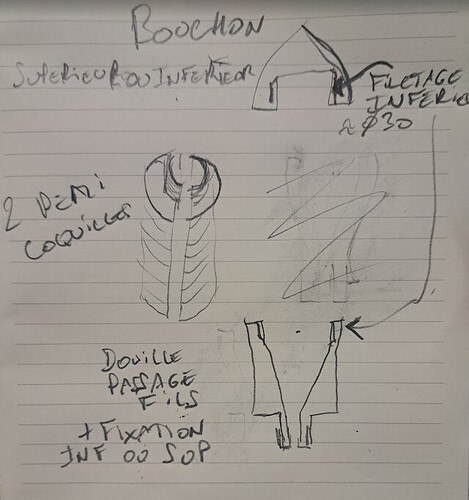 BOUCHON
SUPERIEUR OU INFERIEUR
FILETAGE
INFERIE
≈ Φ30
2 DEMI
COQUILLES
DOUILLE
PASSAGE
FILS
+ FIXATION
INF OU SUP